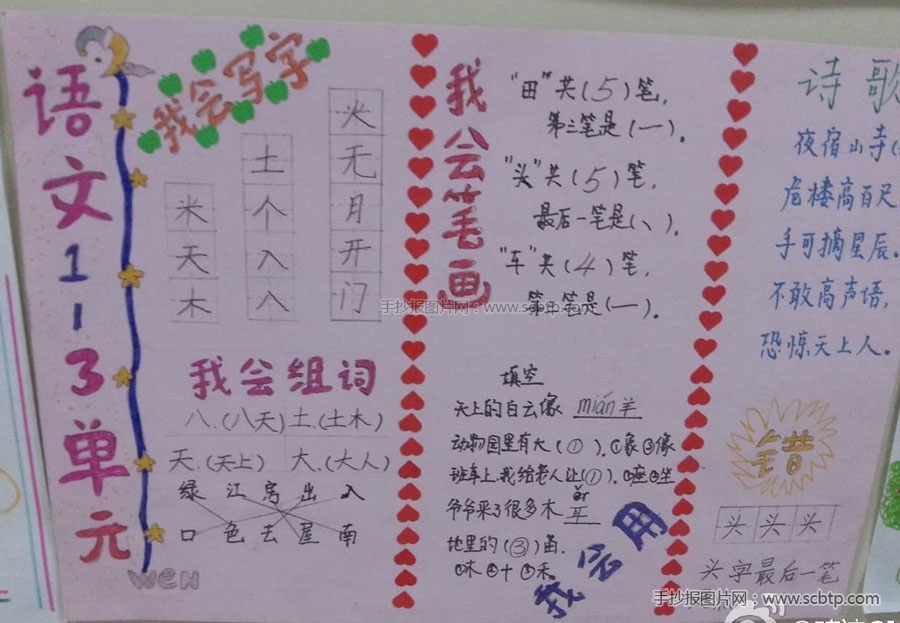 语文1-3单元
wen
我会写字
火
土 无
米 个 月
天 入 开
木 八 门
我会组词
八.(八天) 土.(土木)
天.(天上) 大.(大人)
绿 江 房 出 入
口 色 去 屋 南
我会笔画
"田"共(5)笔,
第三笔是(一)。
"头"共(5)笔,
最后一笔是(、)。
"车"共(4)笔,
笔是(一)。
填空
天上的白云像 mián 羊
动物园里有大(①).①象②像
班车上,我给老人让(①).①座②坐
爷爷采了很多木耳
地里的(③)苗.
①木②十③禾
我会用
诗歌
夜宿山寺(
危楼高百尺
手可摘星辰。
不敢高声语,
恐惊天上人。
错
头 头 头
头字最后一笔
手抄报图片网:www.scbtp.com
手抄报图片网:www.scbtp.com